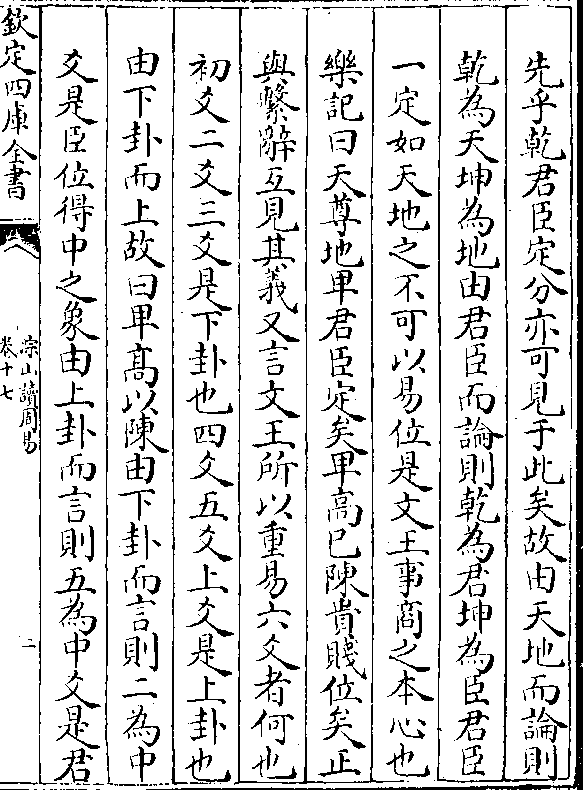 先乎乾君臣定分亦可見于此矣故由天地而論則
乾為天坤為地由君臣而論則乾為君坤為臣君臣
一定如天地之不可以易位是文王事商之本心也
樂記曰天尊地卑君臣定矣卑高已陳貴賤位矣正
與繫辭互見其義又言文王所以重易六爻者何也
初爻二爻三爻是下卦也四爻五爻上爻是上卦也
由下卦而上故曰卑高以陳由下卦而言則二為中
爻是臣位得中之象由上卦而言則五為中爻是君
欽定四庫全書
淙山讀周易
卷十七
二